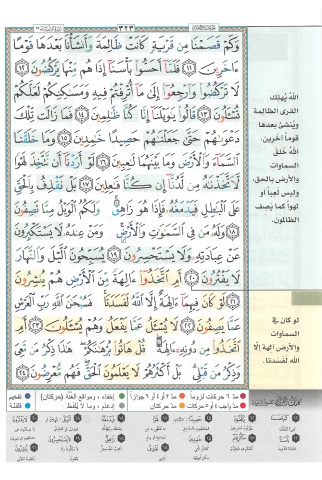 ٣٢٣
وَكَمْ قَصَمْنَا مِن قَرْيَةٍ كَانَتْ ظَالِمَةً وَأَنشَأْنَا بَعْدَهَا قَوْمًا
ءَاخَرِينَ ١١ فَلَمَّا أَحَسُّوا۟ بَأْسَنَآ إِذَا هُم مِّنْهَا يَرْكُضُونَ ١٢
لَا تَرْكُضُوا۟ وَٱرْجِعُوٓا۟ إِلَىٰ مَآ أُتْرِفْتُمْ فِيهِ وَمَسَٰكِنِكُمْ لَعَلَّكُمْ
تُسْـَٔلُونَ ١٣ قَالُوا۟ يَٰوَيْلَنَآ إِنَّا كُنَّا ظَٰلِمِينَ ١٤ فَمَا زَالَت تِّلْكَ
دَعْوَىٰهُمْ حَتَّىٰ جَعَلْنَٰهُمْ حَصِيدًا خَٰمِدِينَ ١٥ وَمَا خَلَقْنَا
ٱلسَّمَآءَ وَٱلْأَرْضَ وَمَا بَيْنَهُمَا لَٰعِبِينَ ١٦ لَوْ أَرَدْنَآ أَن نَّتَّخِذَ لَهْوًا
لَّٱتَّخَذْنَٰهُ مِن لَّدُنَّآ إِن كُنَّا فَٰعِلِينَ ١٧ بَلْ نَقْذِفُ بِٱلْحَقِّ
عَلَى ٱلْبَٰطِلِ فَيَدْمَغُهُۥ فَإِذَا هُوَ زَاهِقٌ ۚ وَلَكُمُ ٱلْوَيْلُ مِمَّا تَصِفُونَ
١٨ وَلَهُۥ مَن فِى ٱلسَّمَٰوَٰتِ وَٱلْأَرْضِ ۚ وَمَنْ عِندَهُۥ لَا يَسْتَكْبِرُونَ
عَنْ عِبَادَتِهِۦ وَلَا يَسْتَحْسِرُونَ ١٩ يُسَبِّحُونَ ٱلَّيْلَ وَٱلنَّهَارَ
لَا يَفْتُرُونَ ٢٠ أَمِ ٱتَّخَذُوٓا۟ ءَالِهَةً مِّنَ ٱلْأَرْضِ هُمْ يُنشِرُونَ
٢١ لَوْ كَانَ فِيهِمَآ ءَالِهَةٌ إِلَّا ٱللَّهُ لَفَسَدَتَا ۚ فَسُبْحَٰنَ ٱللَّهِ رَبِّ ٱلْعَرْشِ
عَمَّا يَصِفُونَ ٢٢ لَا يُسْـَٔلُ عَمَّا يَفْعَلُ وَهُمْ يُسْـَٔلُونَ ٢٣ أَمِ
ٱتَّخَذُوا۟ مِن دُونِهِۦٓ ءَالِهَةً ۖ قُلْ هَاتُوا۟ بُرْهَٰنَكُمْ ۖ هَٰذَا ذِكْرُ مَن مَّعِىَ
وَذِكْرُ مَن قَبْلِى ۗ بَلْ أَكْثَرُهُمْ لَا يَعْلَمُونَ ٱلْحَقَّ ۖ فَهُم مُّعْرِضُونَ ٢٤
اللهُ يُهلِك
القرى الظالمة
ويُنشئ بعدها
قوماً آخرين،
اللهُ خَلَق
السماوات
والأرض بالحق،
وليس لعباً أو
لهواً كما يَصِف
الظالمون.
لو كان في
السماوات
والأرض آلهة إلّا
الله لفسدتا.
مد ٦ حركات لزوماً
مد ٢ أو ٤ أو ٦ جوازاً
إخفاء، ومواقع الغُنَّة (حركتان)
تفخيم
مد واجب ٤ أو ٥ حركات
مد حركتان
إدغام، وما لا يُلفَظ
قلقلة